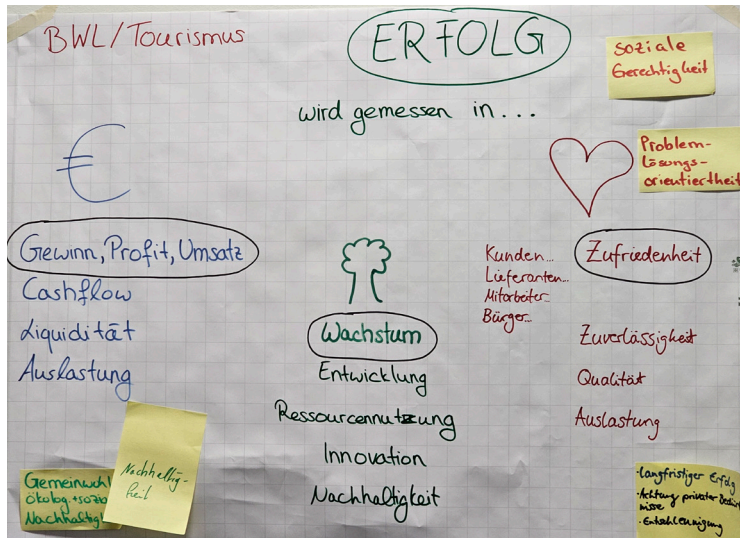 BWL/Tourismus
ERFOLG
wird gemessen in...
soziale
Gerechtigkeit
Problem-
lösungs-
orientiertheit
€
Gewinn, Profit, Umsatz
Cashflow
Liquidität
Auslastung
Wachstum
Entwicklung
Ressourcennutzung
Innovation
Nachhaltigkeit
Kunden...
Lieferanten...
Mitarbeiter
Bürger...
Zufriedenheit
Zuverlässigkeit
Qualität
Auslastung
Gemeinwohl
ökolog.+sozia
Nachhaltigk
Nachhaltig-
keit
·langfristiger Erfolg
·Achtung privater Bedürf
nisse
·Entschleunigung